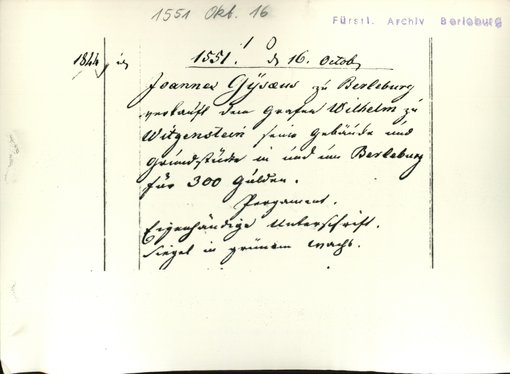 1551 Okt. 16
Fürstl. Archiv Berleburg
1551. 16. Octob
Joannes Gÿsæus zu Berleburg
verkauft dem Grafen Wilhelm zu
Witgenstein seine Gebäude und
Grundstücke in und um Berleburg
für 300 Gulden.
Pergament.
Eigenhändige Unterschrift.
Siegel in grünem Wachs.